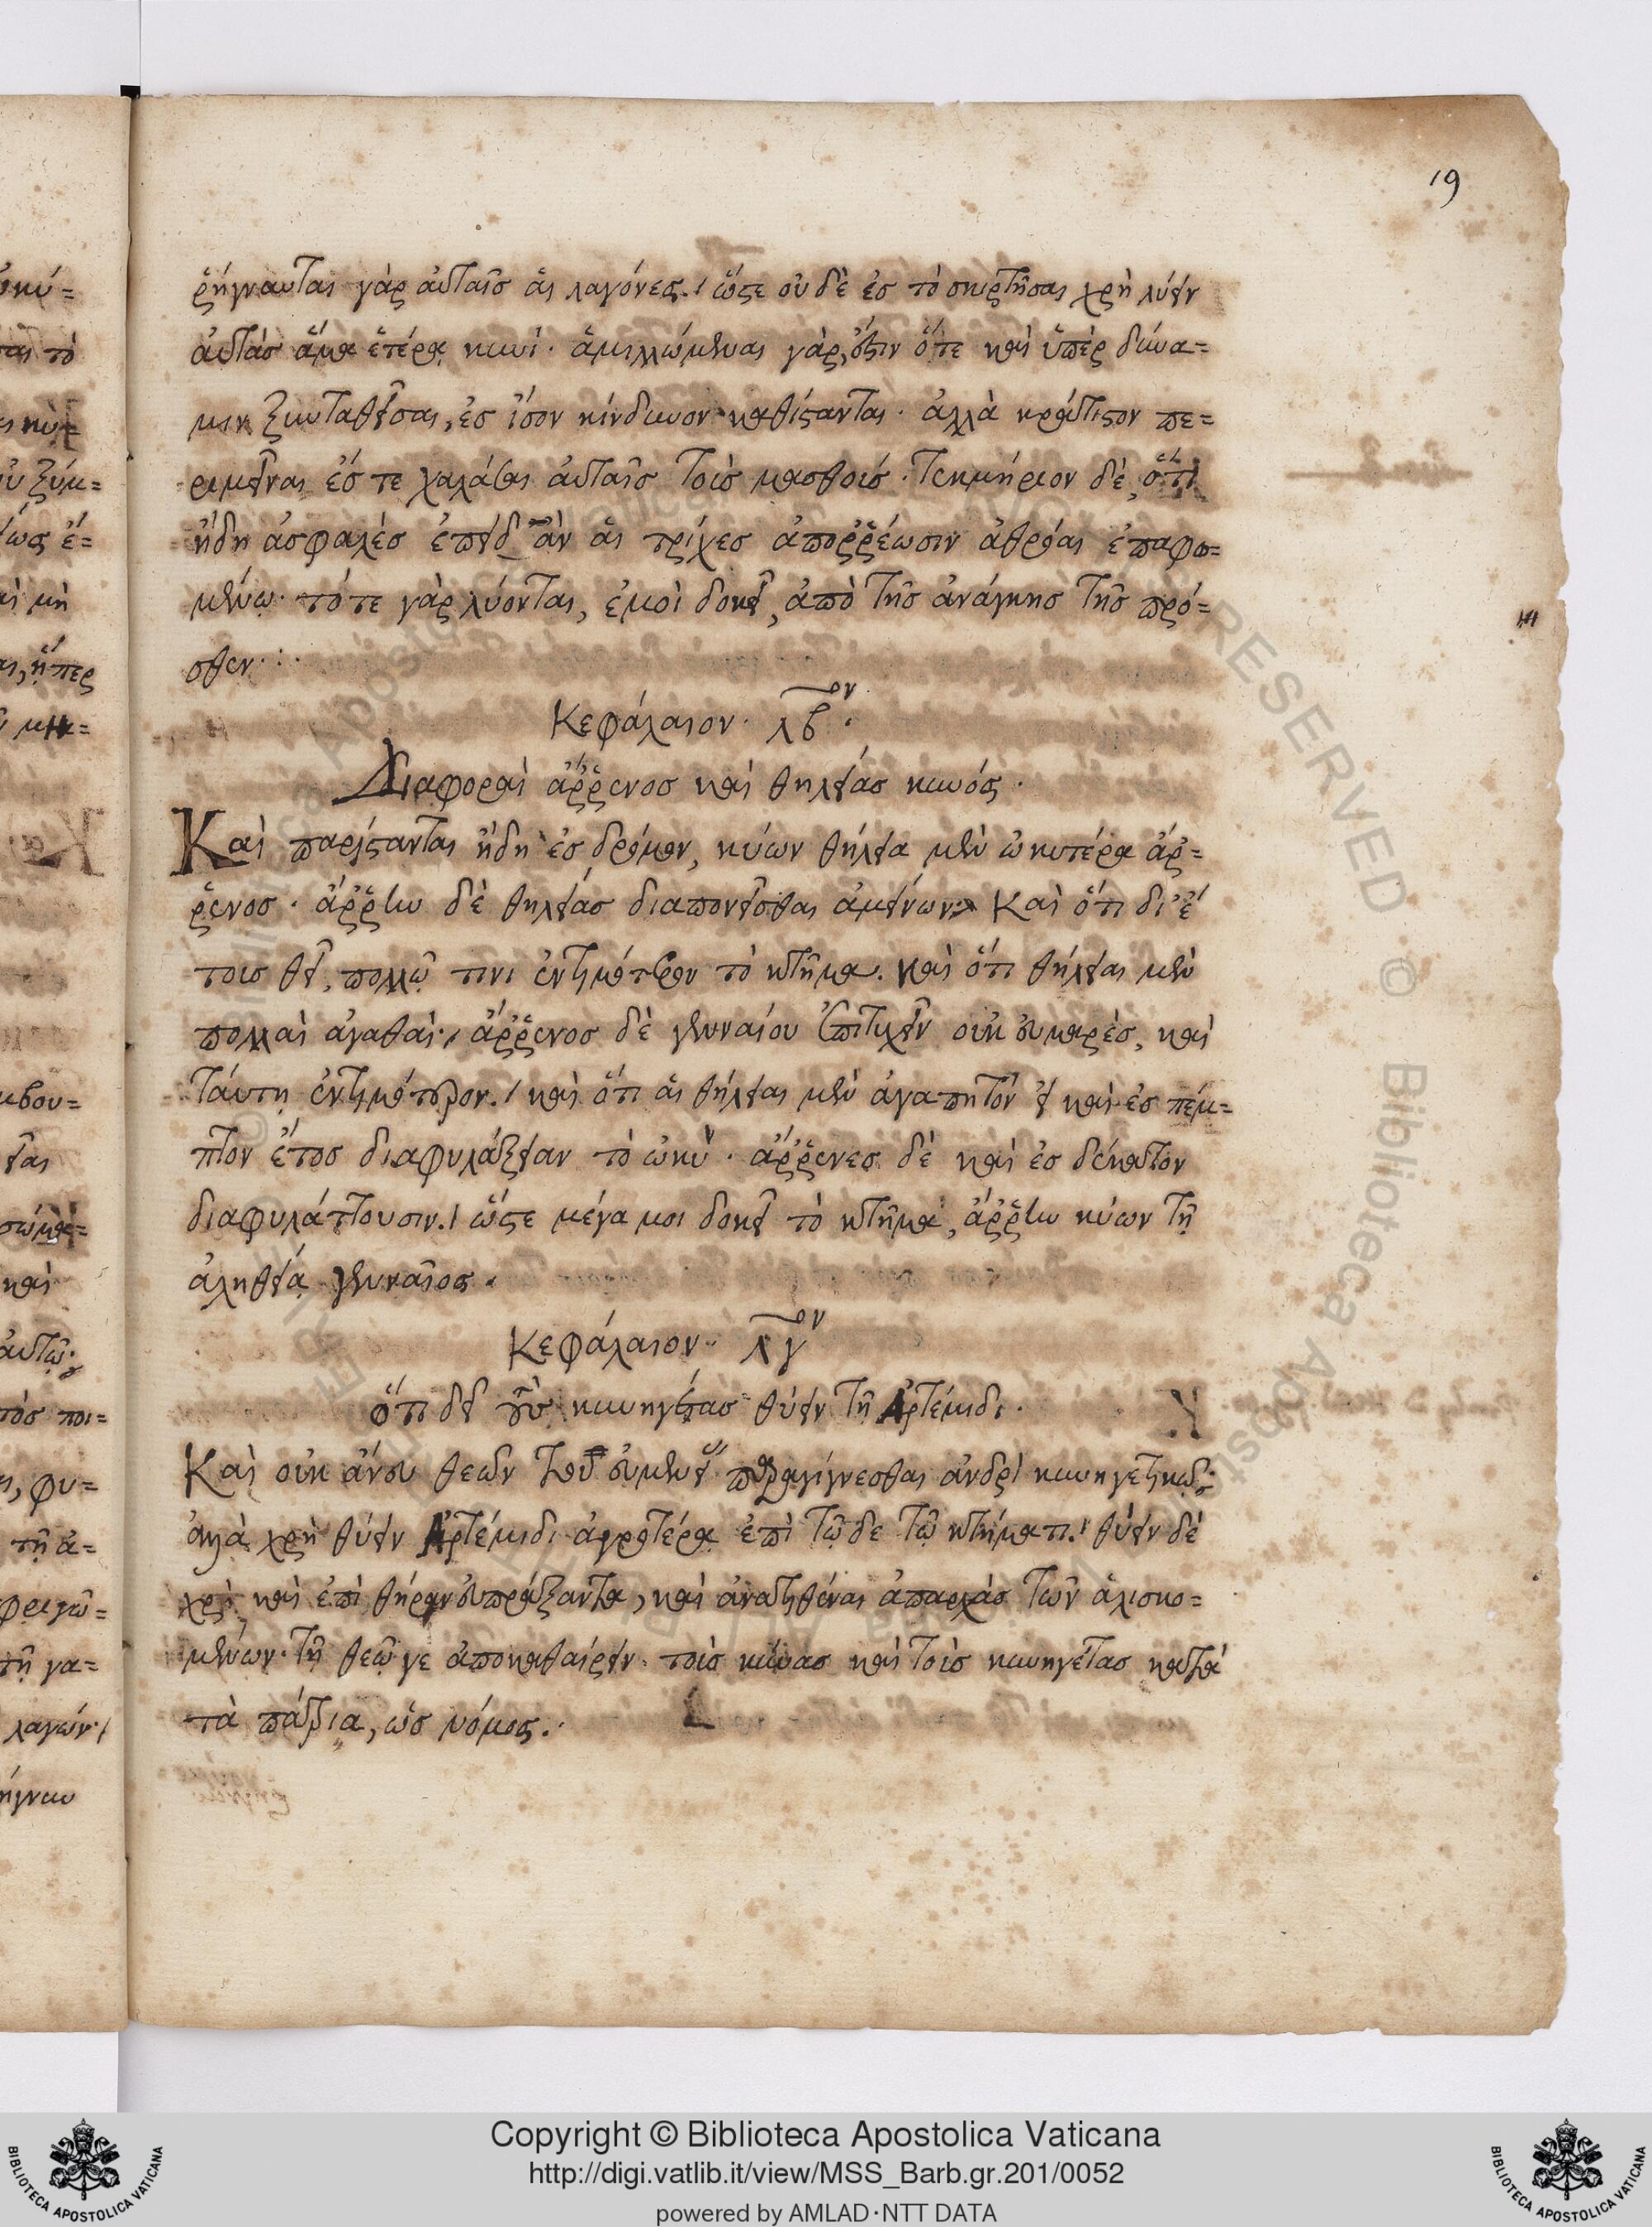 19
ῥήγνυνται γὰρ αὐταῖς αἱ λαγόνες. ὥςε οὐδὲ ἐς τὸ σκιρτῆσαι χρὴ λύειν
αὐτὰς ἅμα ἑτέρᾳ κυνί. ἁμιλλώμεναι γὰρ, ἔςιν ὅτε καὶ ὑπὲρ δύνα=
μιν ξυνταθεῖσαι, ἐς ἶσον κίνδυνον καθίςανται. ἀλλὰ κράτιςον πε=
ριμεῖναι ἔς τε χαλάσαι αὐταῖς τοὶς μασθοὶς. Τεκμήριον δὲ, ὅτι
ἤδη ἀσφαλὲς ἐπειδ ἂν αἱ τρίχες ἀποῤῥέωσιν ἀθρόαι ἐπαφω=
μένῳ. τότε γὰρ λύονται, ἐμοὶ δοκεῖ, ἀπὸ τῆς ἀνάγκης τῆς πρό=
σθεν.
Κεφάλαιον. λβον.
Διαφοραὶ ἄῤῥενος καὶ θηλείας κυνός.
Καὶ παρίςανται ἤδη ἐς δρόμον, κύων θήλεια μὲν ὠκυτέρα ἄρ=
ῥενος. ἄῤῥην δὲ θηλείας διαπονεῖσθαι ἀμείνων. Καὶ ὅτι δι' ἔ
τοις θεῖ, πολλῷ τινι ἐντιμότερον τὸ κτῆμα. καὶ ὅτι θήλειαι μὲν
πολλαὶ ἀγαθαὶ. ἄῤῥενος δὲ γενναίου ἐπιτυχεῖν οὐκ εὐμαρὲς, καὶ
ταύτῃ ἐντιμότερον. καὶ ὅτι αἱ θήλειαι μὲν ἀγαπητὸν εἰ καὶ ἐς πέμ=
πτον ἔτος διαφυλάξειαν τὸ ὠκὺ. ἄῤῥενες δὲ καὶ ἐς δέκατον
διαφυλάττουσιν. ὥςε μέγα μοι δοκεῖ τὸ κτῆμα, ἄῤῥην κύων τῇ
ἀληθείᾳ γενναῖος.
Κεφάλαιον. λγον
ὅτι δεῖ τοὺς κυνηγέτας θύειν τῇ Ἀρτέμιδι.
Καὶ οὐκ ἄνευ θεῶν του εὐμενοῦς παραγίγνεσθαι ἀνδρὶ κυνηγετικῷ.
ἀλλὰ χρὴ θύειν Ἀρτέμιδι ἀγροτέρᾳ ἐπὶ τῷδε τῷ κτήματι. θύειν δὲ
χρὴ καὶ ἐπὶ θήραν εὐπράξαντα, καὶ ἀνατιθέναι ἀπαρχὰς τῶν ἁλισκο=
μένων τῇ θεῷ γε ἀποκαθαίρειν τοὶς κύνας καὶ τοὶς κυνηγέτας κατὰ
τὰ πάτρια, ὡς νόμος.
Copyright © Biblioteca Apostolica Vaticana
http://digi.vatlib.it/view/MSS_Barb.gr.201/0052
powered by AMLAD·NTT DATA